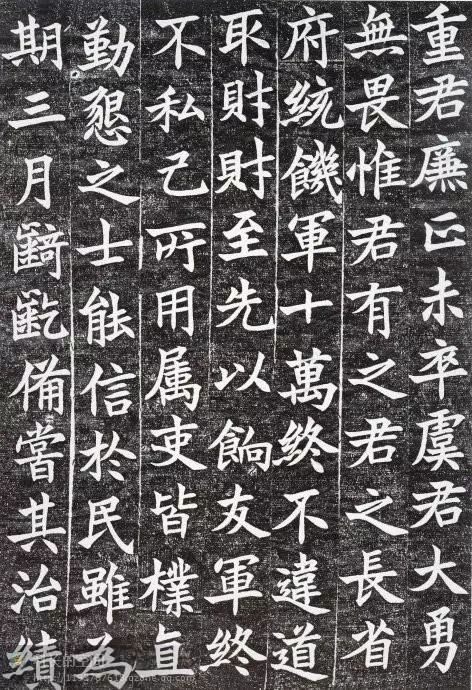 重君廉正未卒虞君大勇
無畏惟君有之君之長省
府統饑軍十萬終不違道
取財財至先以餉友軍終
不私己所用属吏皆樸直
勤懇之士能信於民雖為
期三月齮齕備嘗其治績